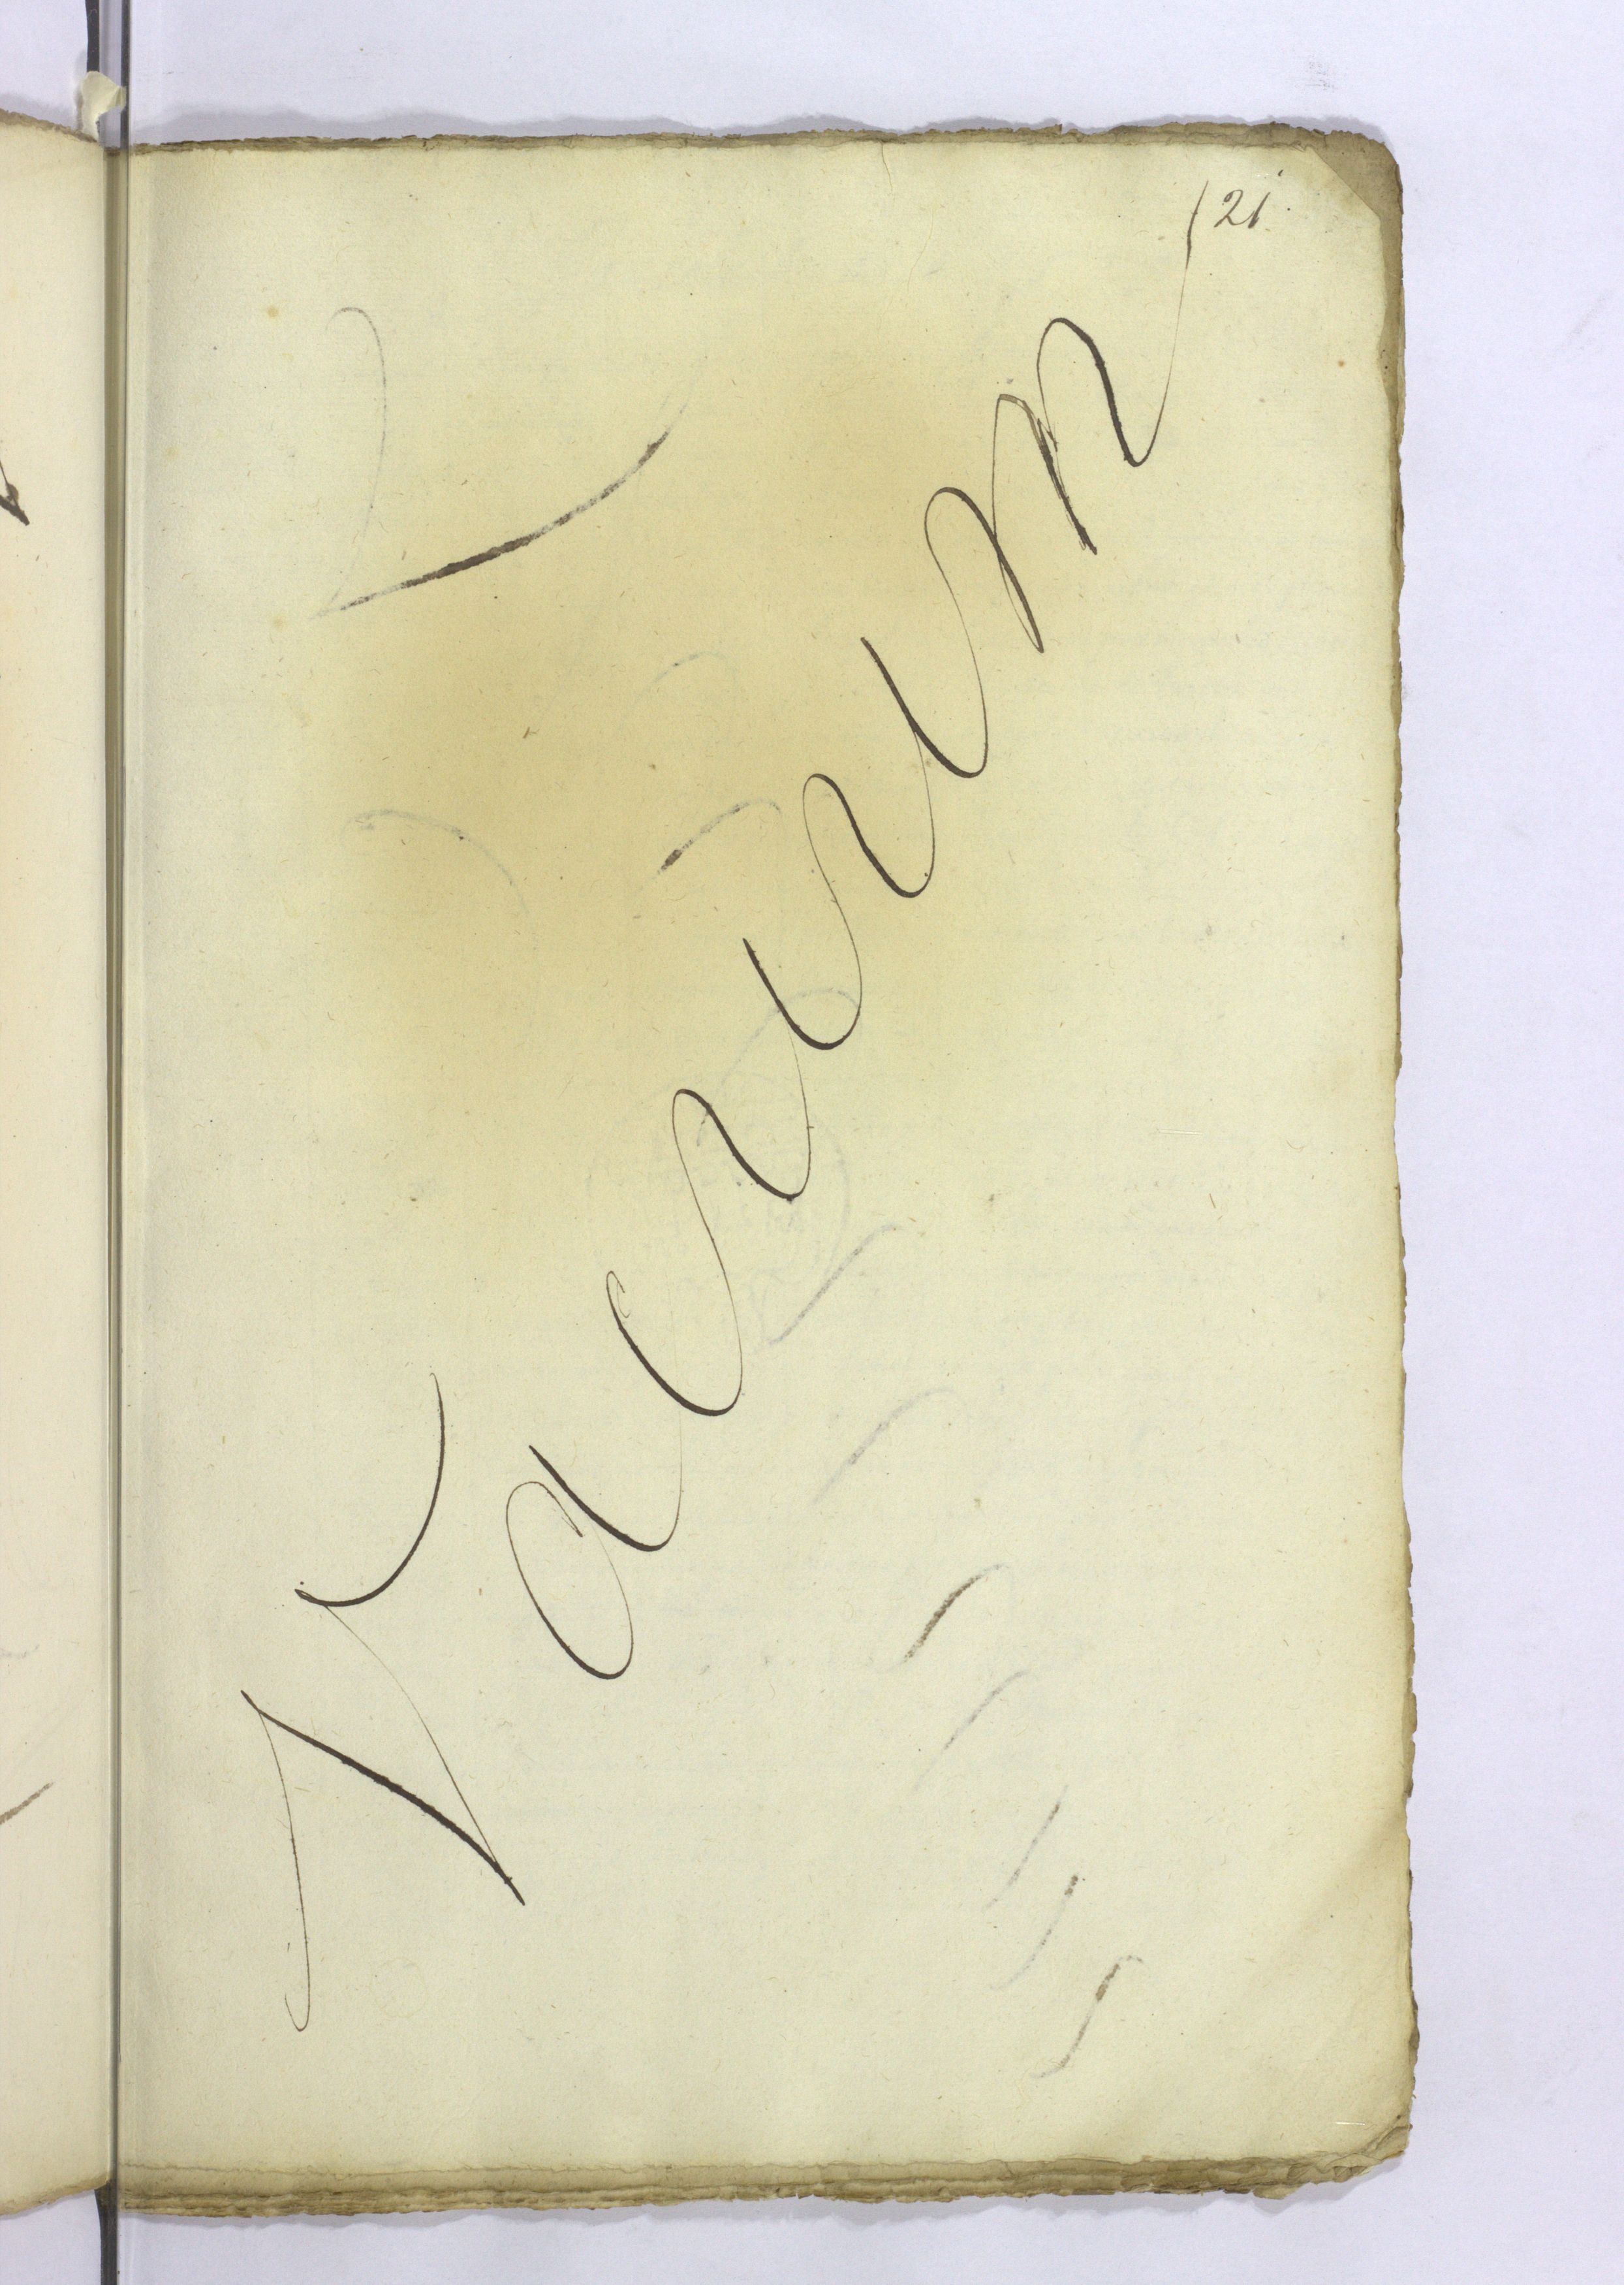 21.
Vacuum